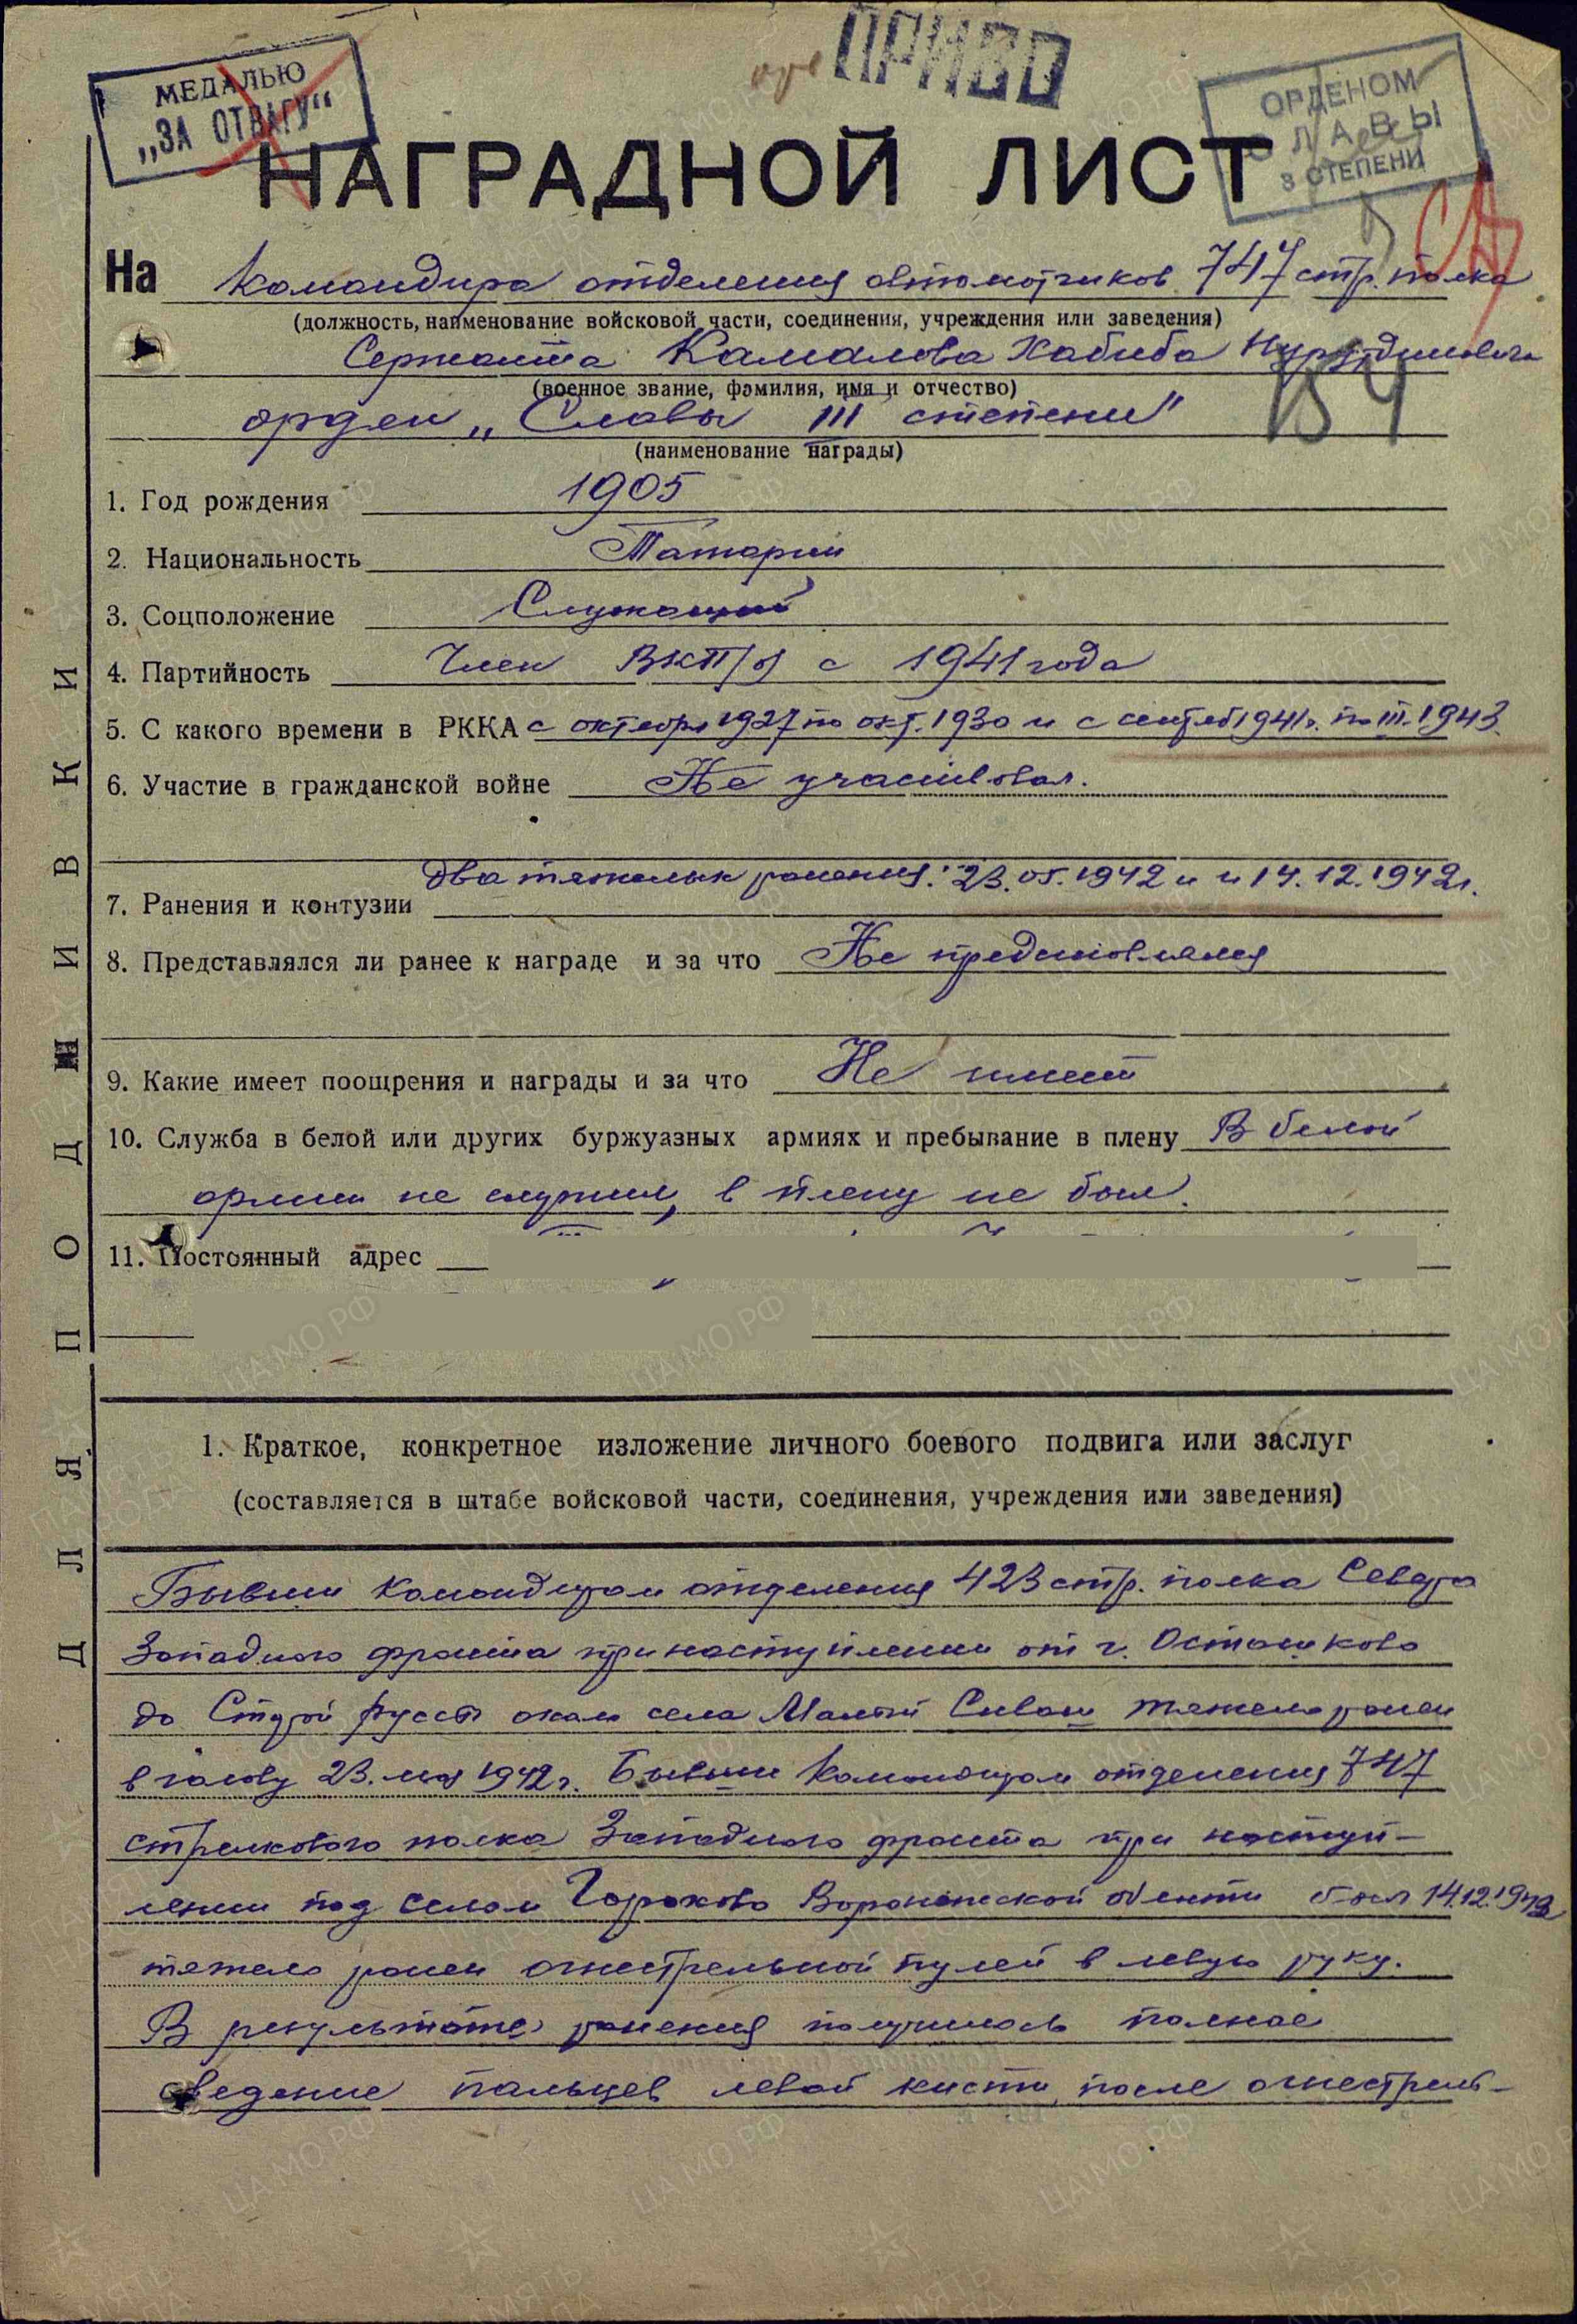 МЕДАЛЬЮ
„ЗА ОТВАГУ“
ПРИВО
ОРДЕНОМ
СЛАВЫ
3 СТЕПЕНИ
НАГРАДНОЙ ЛИСТ
На Командира отделения автоматчиков 747 стр. полка
(должность, наименование войсковой части, соединения, учреждения или заведения)
Сержанта Камалова Хабиба Нурутдиновича
(военное звание, фамилия, имя и отчество)
орден „Славы III степени"
(наименование награды)
1. Год рождения 1905
2. Национальность Татарин
3. Соцположение Служащий
4. Партийность Член ВКП/б/ с 1941 года
5. С какого времени в РККА с октября 1927 по окт. 1930 и с сентяб 1941г. по III.1943
6. Участие в гражданской войне Не участвовал.
7. Ранения и контузии два тяжелых ранения: 23.05.1942 и и 14.12.1942г.
8. Представлялся ли ранее к награде и за что Не представлялся
9. Какие имеет поощрения и награды и за что Не имеет
10. Служба в белой или других буржуазных армиях и пребывание в плену В белой
армии не служил, в плену не был.
11. Постоянный адрес
1. Краткое, конкретное изложение личного боевого подвига или заслуг
(составляется в штабе войсковой части, соединения, учреждения или заведения)
Бывши Командиром отделения 423 стр. полка Северо
Западного фронта при наступлении от г. Осташково
до Старой Руссы около села Малый тяжело ранен
в голову 23. мая 1942 г. Бывши Командиром отделения 747
стрелкового полка Западного фронта при наступ-
лении под селом Горохово Воронежской области был 14.12.1942
тяжело ранен огнестрельной пулей в левую руку.
В результате ранения получилось полное
сведение пальцев левой кисти после огнестрель-
ДЛЯ ПОДШИВКИ
184
ЦАМО РФ
ПАМЯТЬ НАРОДА